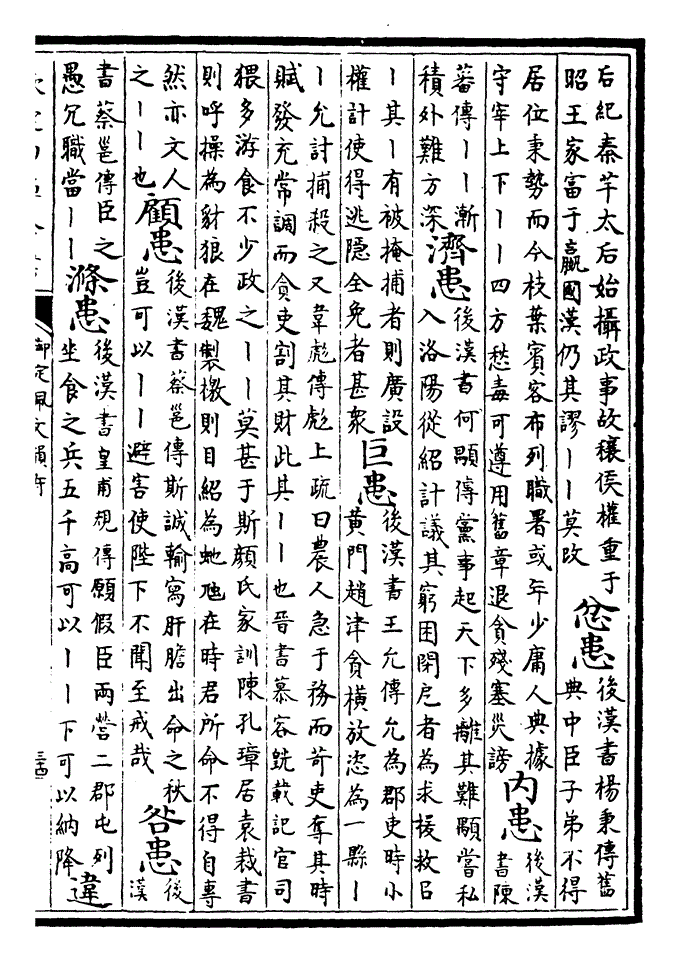 后紀秦芊太后始攝政事故穰侯權重于
昭王家富于嬴國漢仍其謬丨丨莫改
忿患
後漢書楊秉傳舊
典中臣子弟不得
居位秉勢而今枝葉賓客布列職署或年少庸人典據
守宰上下丨丨四方愁毒可遵用舊章退貪殘塞災謗
内患
後漢
書陳
蕃傳丨丨漸
積外難方深
濟患
後漢書何顒傳黨事起天下多離其難顒當私
入洛陽從紹計議其窮困閉戹者為求援救㠯
丨其丨有被掩捕者則廣設
權計使得逃隠全免者甚衆
巨患
後漢書王允傳允為郡吏時小
黄門趙津貪横放恣為一縣丨
丨允討捕殺之又韋彪傳彪上疏曰農人急于務而苛吏奪其時
賦發充常調而貪吏割其財此其丨丨也晉書慕容皝載記官司
猥多游食不少政之丨丨莫甚于斯顔氏家訓陳孔璋居袁裁書
則呼操為豺狼在魏製檄則目紹為虵虺在時君所命不得自專
然亦文人
之丨丨也
顧患
後漢書蔡邕傳斯誠輸寫肝膽出命之秋
豈可以丨丨避害使陛下不聞至戒哉
咎患
後
漢
書蔡邕傳臣之
愚冗職當丨丨
滌患
後漢書皇甫規傳願假臣兩營二郡屯列
坐食之兵五千高可以丨丨下可以納降
違
御定佩文韻府